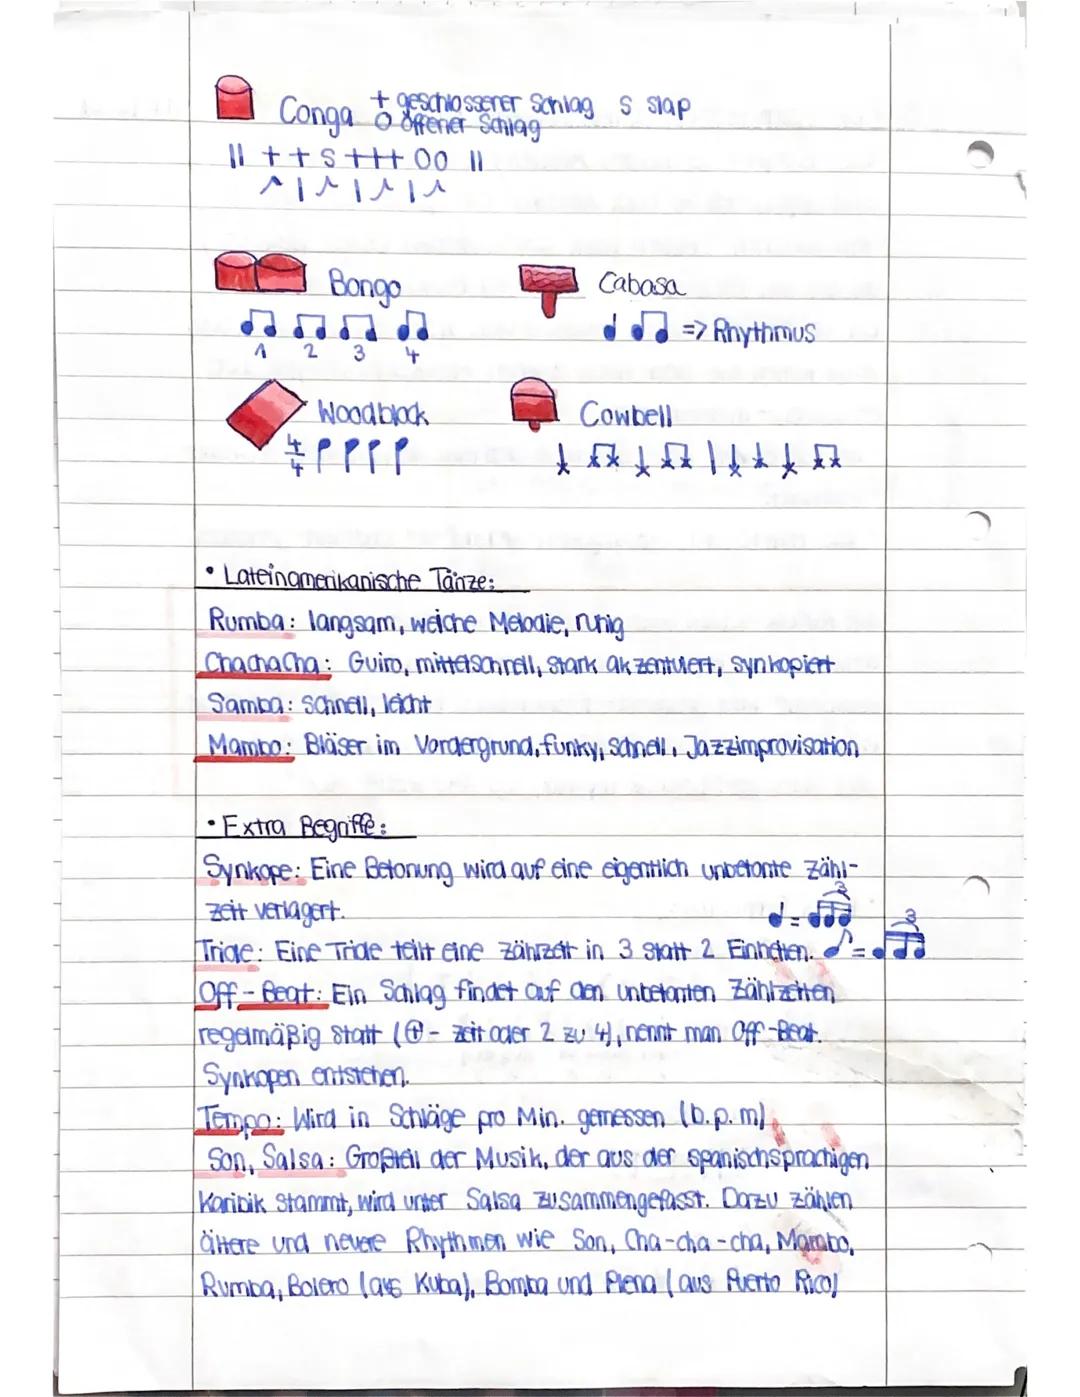 Conga + geschlossener Schlag S slap
O offener Schlag
|| + + S +++ OO ||
Bongo
Cabasa
1 2 3 4
=> Rhythmus
Woodblock
Cowbell
4/4
• Lateinamerikanische Tänze:
Rumba: langsam, weiche Melodie, ruhig
ChaChaCha: Guiro, mittelschnell, stark akzentuiert, synkopiert
Samba: schnell, leicht
Mambo: Bläser im Vordergrund, funky, schnell, Jazzimprovisation
• Extra Begriffe:
Synkope: Eine Betonung wird auf eine eigentlich unbetonte Zähl-
zeit verlagert.
3
Triole: Eine Triole teilt eine Zählzeit in 3 statt 2 Einheiten.
3
Off-Beat: Ein Schlag findet auf den unbetonten Zählzeiten
regelmäßig statt (⊕ - zeit oder 2 zu 4), nennt man Off-Beat.
Synkopen entstehen.
Tempo: Wird in Schläge pro Min. gemessen (b.p.m)
Son, Salsa: Großteil der Musik, der aus der spanischsprachigen
Karibik stammt, wird unter Salsa zusammengefasst. Dazu zählen
ältere und neuere Rhythmen wie Son, Cha-cha-cha, Mambo,
Rumba, Bolero (aus Kuba), Bomba und Plena (aus Puerto Rico)